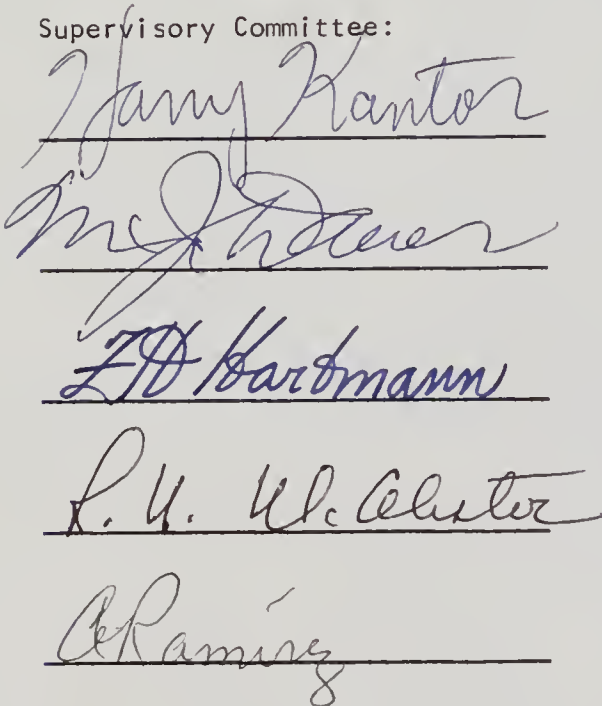 Supervisory Committee:
Harry Kantor
M J Dauer
Hartmann
R. H. McAlister
A Ramírez